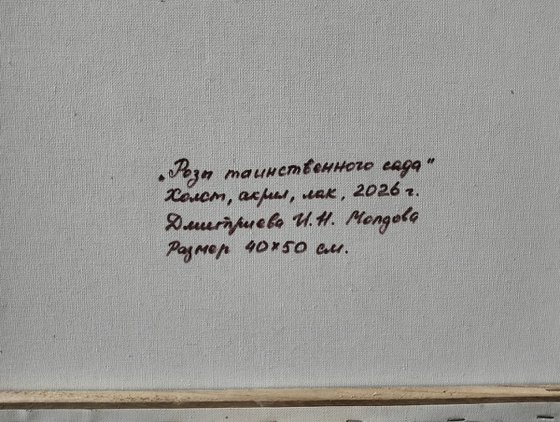 „Розы таинственного сада"
Холст, акрил, лак, 2026 г.
Дмитриева И. Н. Молдова
Размер 40×50 см.